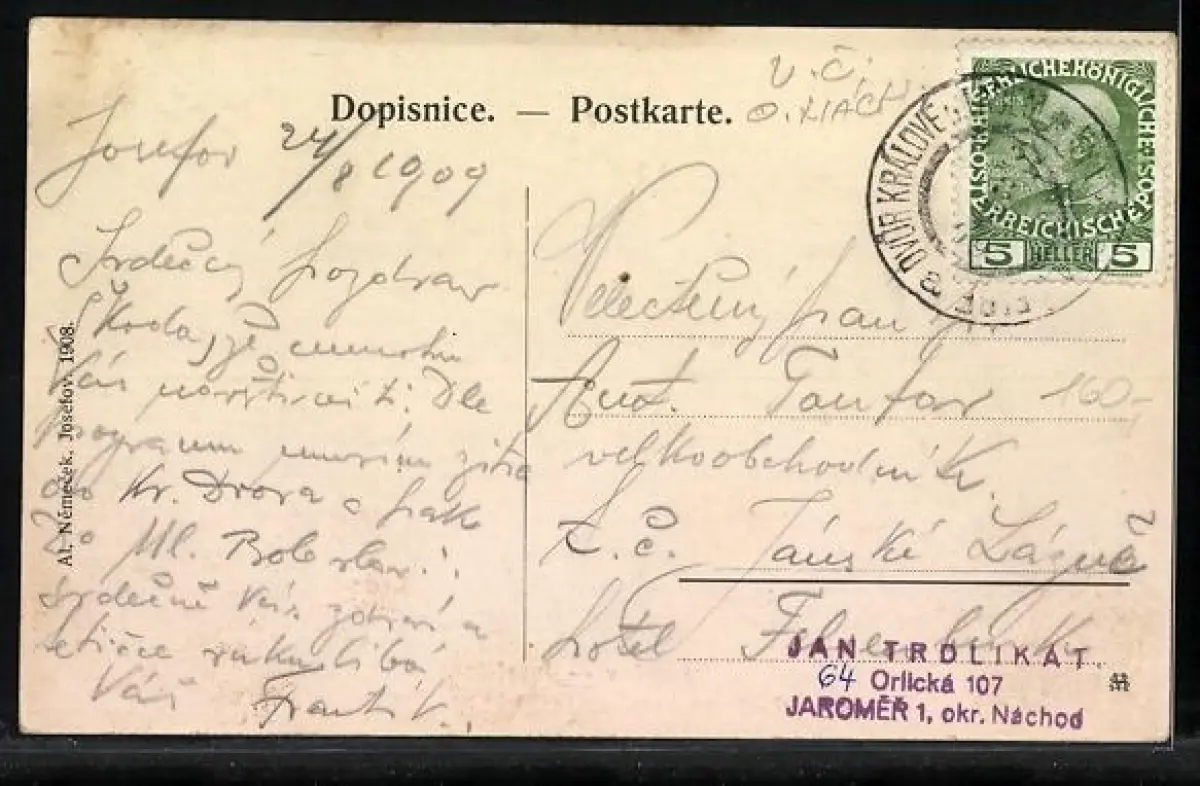 Dopisnice. — Postkarte.
Josefov 24/8 1909
Srdečný pozdrav
Škoda, že
Vás navštíviti. Dle
programu musím zítra
do Kr. Dvora a pak
do Ml. Boleslavi.
Srdečně Vás zdraví a
ruku líbá
Váš Frant. V.
Al. Němeček. Josefov. 1908.
V. Č.
Velectěný pan
Ant. 160,-
velkoobchodník
t. č. Jánské Lázně
hotel
DVŮR KRÁLOVÉ
KAISERLICHEKÖNIGLICHE
ÖSTERREICHISCHE POST
5 HELLER 5
JAN TRDLIKAT
64 Orlická 107
JAROMĚŘ 1, okr. Náchod